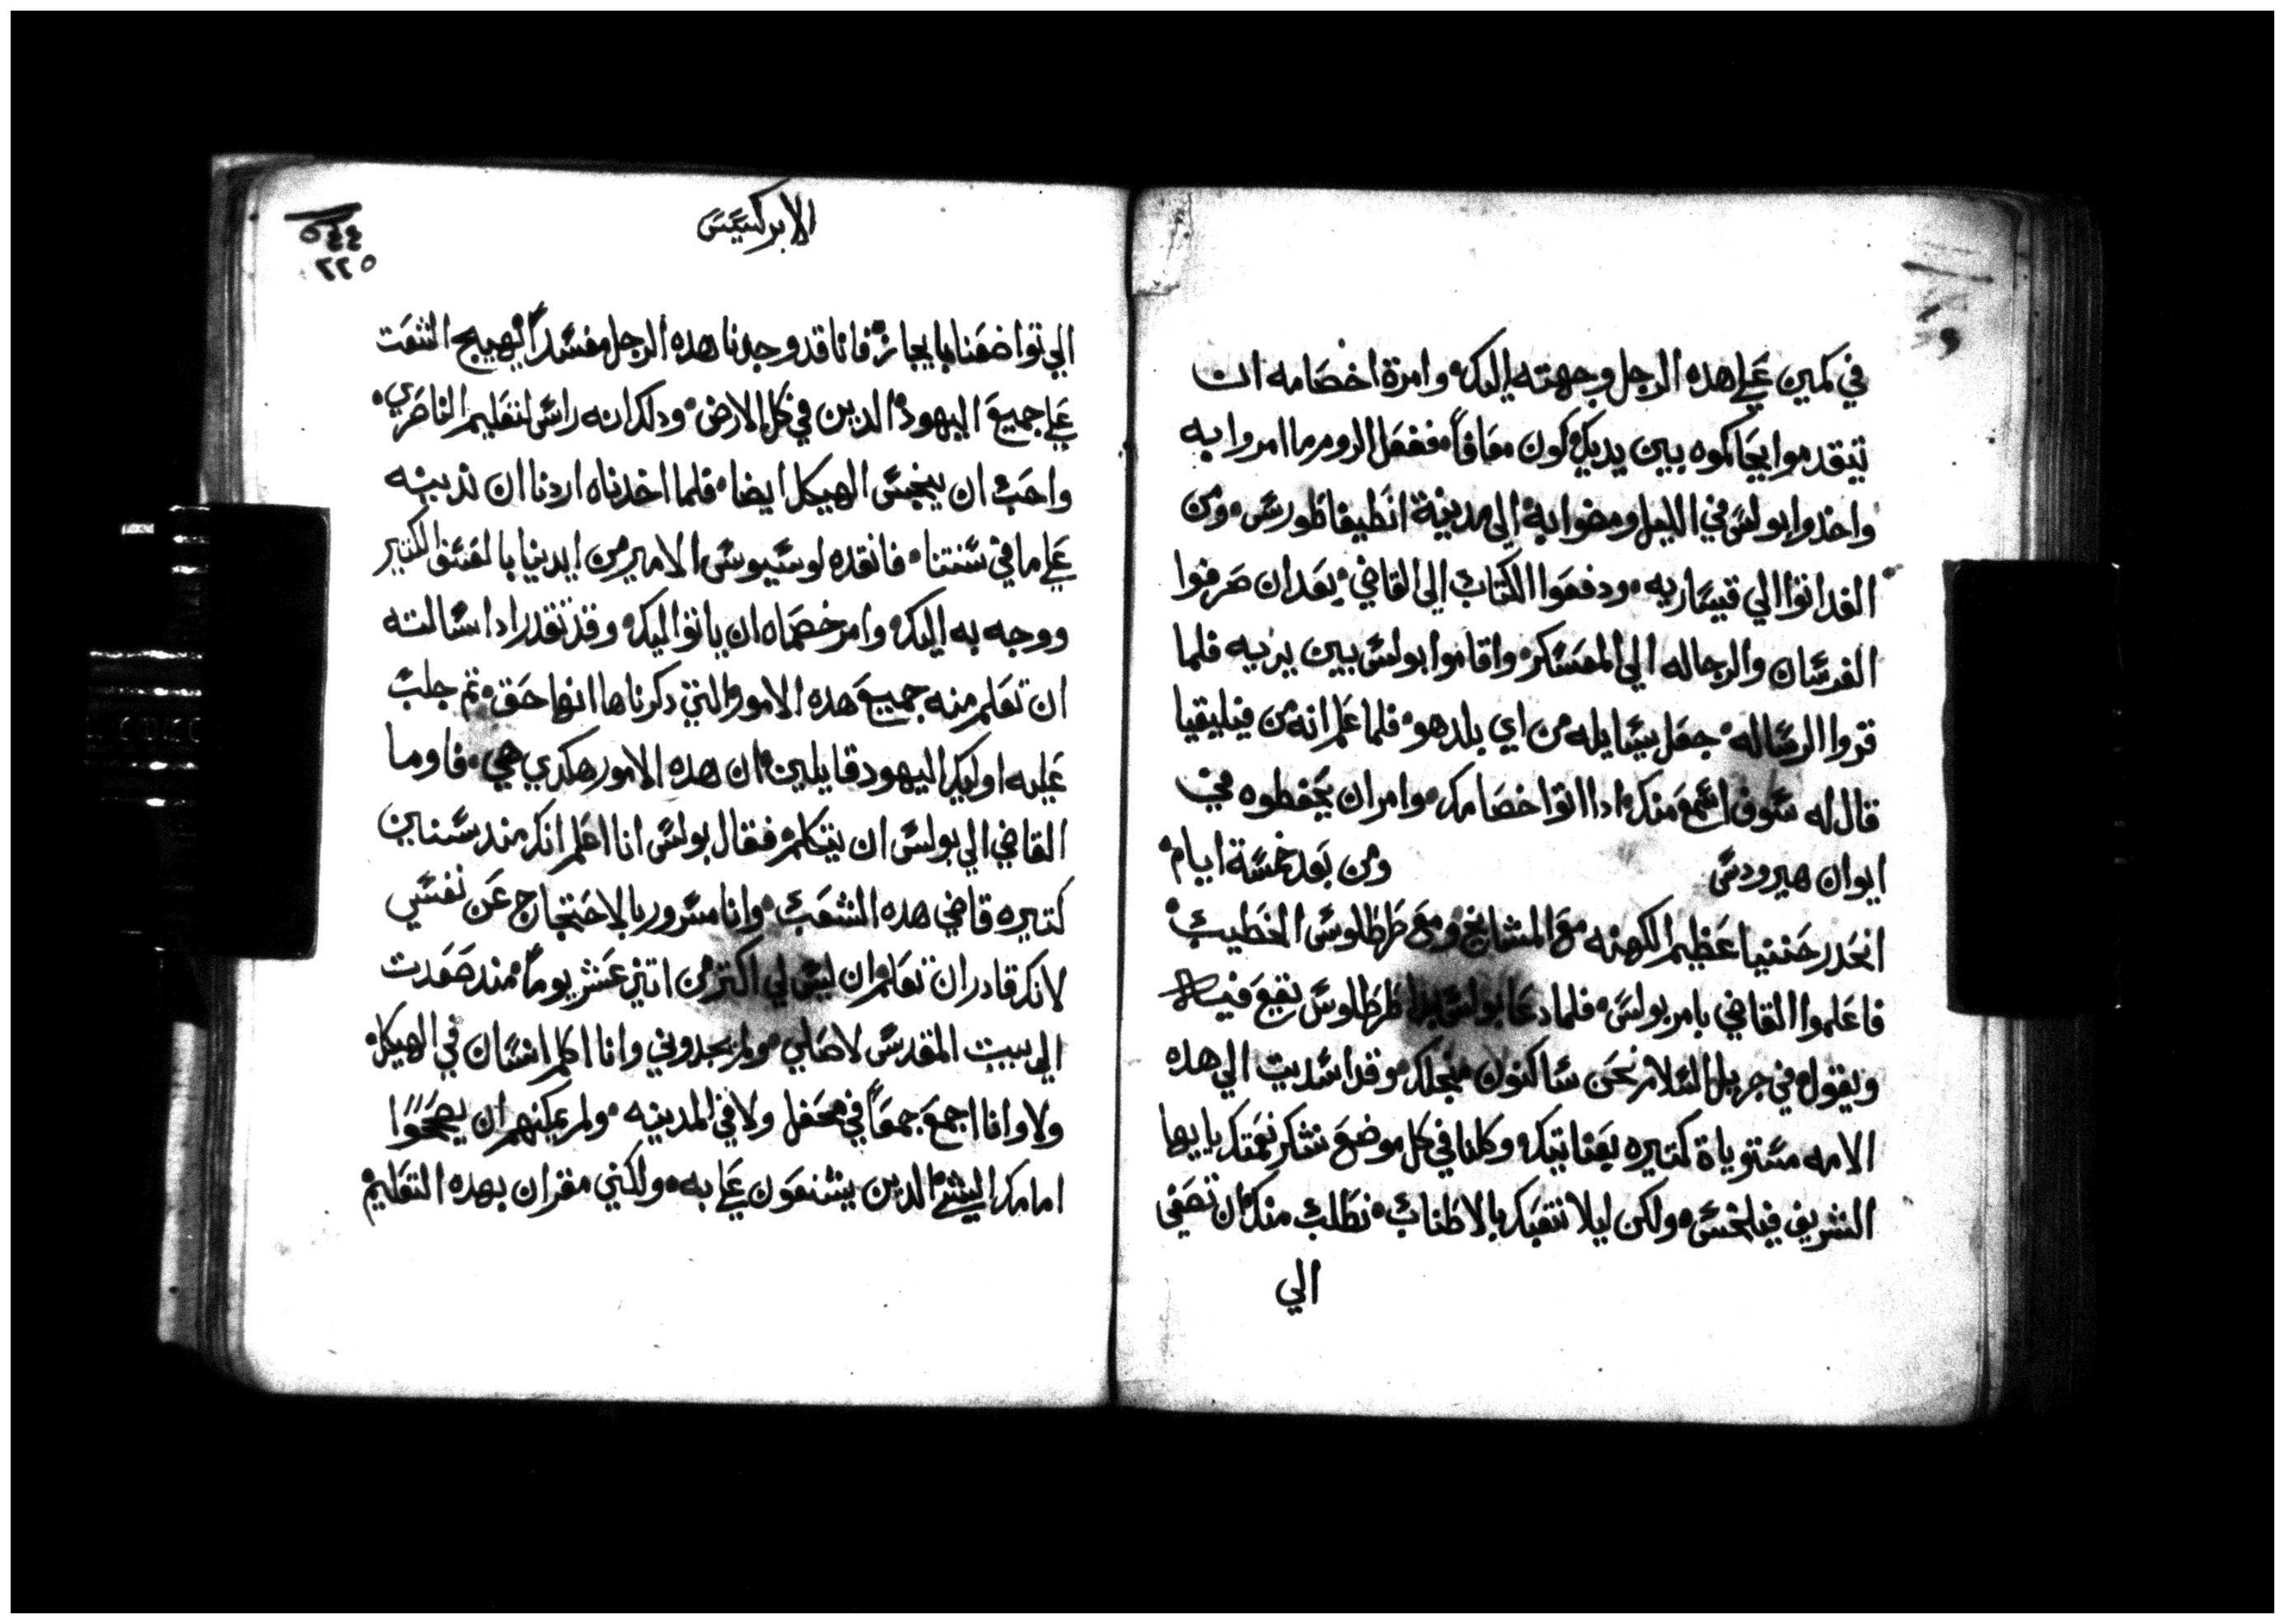 في كمين علي هده الرجل وجهته اليك، وامرة اخصامه ان
يتقدموا يحاكموه بين يديك كون معافاً، ففعل الروم ما امروا به
واخذوا بولس في الليل ومضوا به الي مدينة انطيفاطورس، ومن
الغد اتوا الي قيساريه، ودفعوا الكتاب الي القاضي، بعد ان صرفوا
الفرسان والرجاله الي المعسكر، واقاموا بولس بين يديه فلما
قروا الرساله، جعل يسايله من اي بلد هو، فلما علم انه من فيليقيا
قال له سوف اسمع منك، ادا اتوا خصامك، وامر ان يحفطوه في
ايوان هيرودس ومن بعد خمسة ايام،
انحدر حننيا عظيم الكهنه مع المشايخ ومع طرطلوس الخطيب،
فاعلموا القاضي بامر بولس، فلما دعا بولس بدا طرطلوس يقع فيه
ويقول في جزيل السلام نحن ساكنون منجلك، وقد اسديت الي هده
الامه مستوياة كتيره بعنايتك، وكلنا في كل موضع نشكر نعمتك يا ايها
الشريف فيلخس، ولكن ليلا نتعبك بالاطناب، نطلب منك ان تصغي
الي
الابركسيس
٥٤٤
٢٢٥
الي تواضعنا بايجاز، فانا قد وجدنا هده الرجل مفسداً يهيج الشعت
علي جميع اليهود الدين في كل الارض، ودلك انه راس لتعليم الناصري،
واحب ان ينجس الهيكل ايضا، فلما اخدناه اردنا ان ندينه
علي ما في سنتنا، فانقده لوسيوس الامير من ايدينا بالعسف الكتير
ووجه به اليك، وامر خصماه ان ياتوا اليك، وقد تقدر ادا سالته
ان تعلم منه جميع هده الامور التي دكرناها انها حق، تم جلب
عليه اوليك اليهود قايلين ان هده الامور هكدي هي، فاوما
القاضي الي بولس ان يتكلم، فقال بولس انا اعلم انك مند سنين
كتيره قاضي هده الشعب، وانا مسرور بالاحتجاج عن نفسي
لانك قادر ان تعلم ان ليس لي اكتر من اتني عشر يوماً مند صعدت
الي بيت المقدس لاصلي، ولم يجدوني وانا اكلم انسان في الهيكل،
ولا وانا اجمع جمعاً في محفل ولا في المدينه، ولم يمكنهم ان يصححوا
امامك الشي الدين يشنعون علي به، ولكني مقر ان بهده التعليم